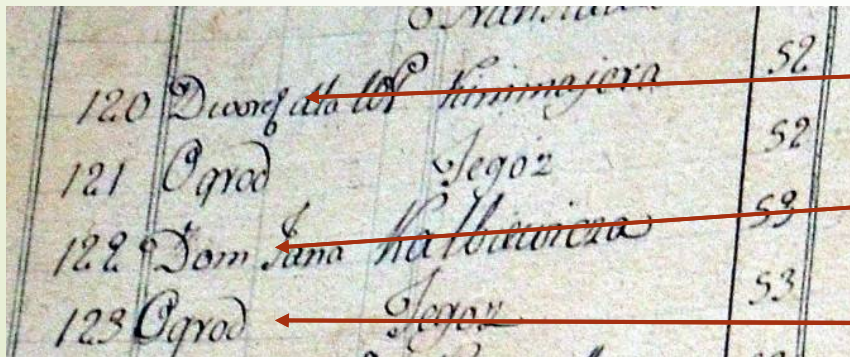 120 Dworek dla WP Kinmajera 52
121 Ogrod Tegoz 52
122 Dom Jana Kalbiewicza 53
123 Ogrod Tegoz 53